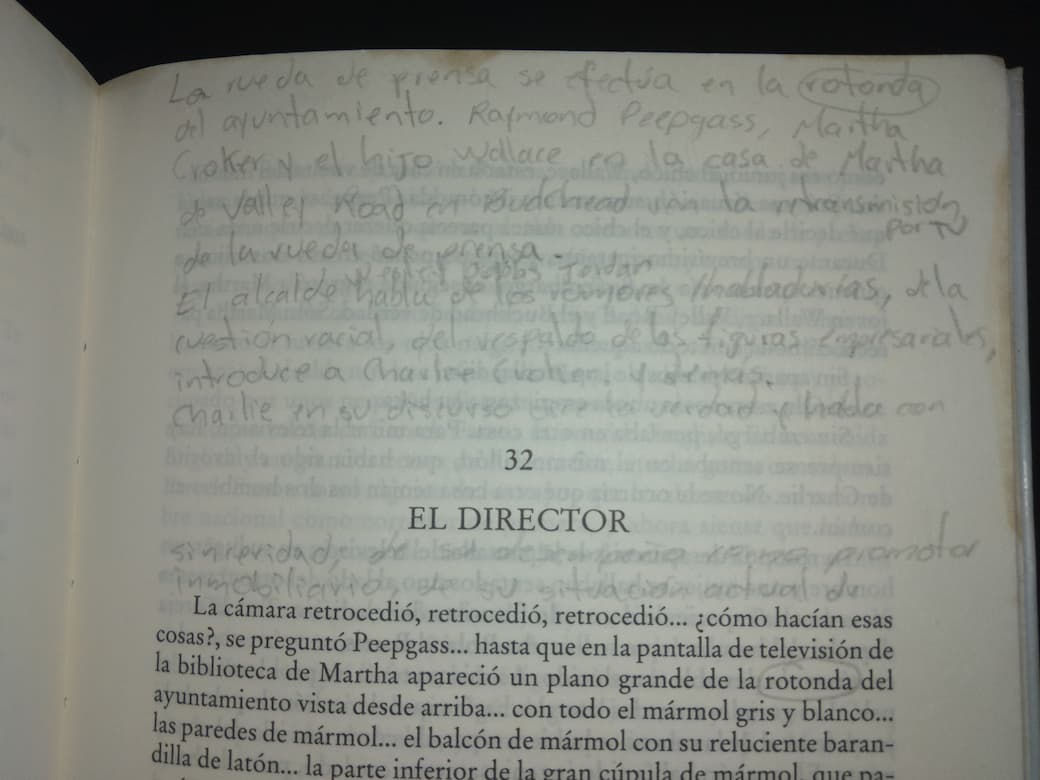 La rueda de prensa se efectúa en la rotonda
del ayuntamiento. Raymond Peepgass, Martha
Croker y el hijo Wallace en la casa de Martha
de Valley Road en Buckhead ven la retransmisión,
por TV
de la rueda de prensa.
Wesley Dobbs Jordan
El alcalde habla de los rumores / habladurías, de la
cuestión racial, del respaldo de las figuras empresariales,
introduce a Charlie Croker. Y demás.
Charlie en su discurso dice la verdad y habla con
32
EL DIRECTOR
sinceridad, de su desempeño como promotor
inmobiliario, de su situación actual de
La cámara retrocedió, retrocedió, retrocedió... ¿cómo hacían esas
cosas?, se preguntó Peepgass... hasta que en la pantalla de televisión de
la biblioteca de Martha apareció un plano grande de la rotonda del
ayuntamiento vista desde arriba... con todo el mármol gris y blanco...
las paredes de mármol... el balcón de mármol con su reluciente baran-
dilla de latón... la parte inferior de la gran cúpula de mármol, que pa-